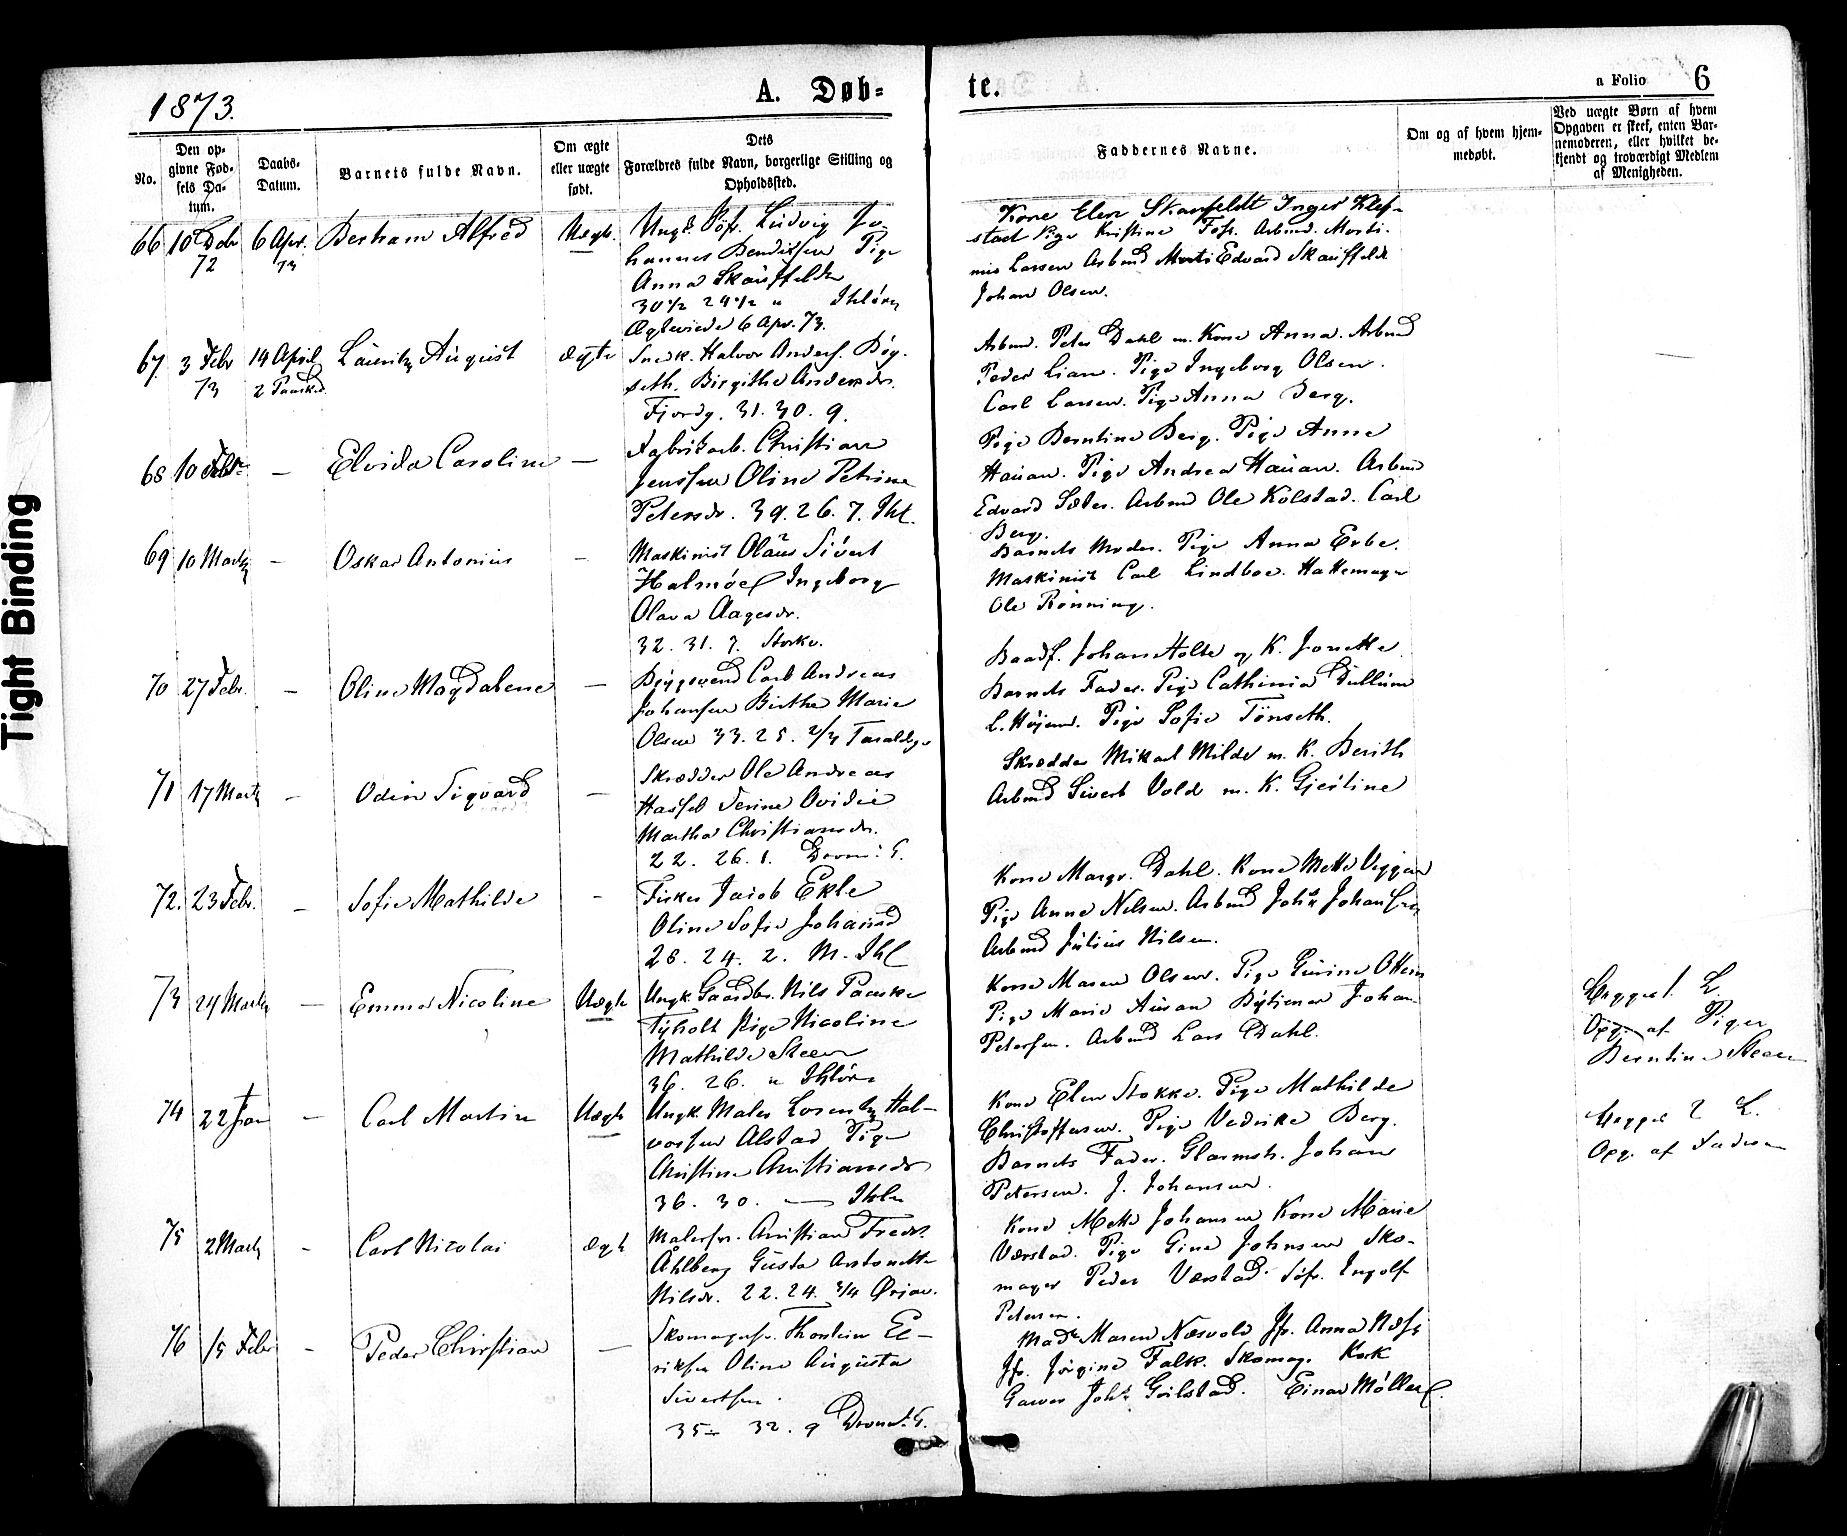 1873.
A. Døb=
te.
a Folio 6
No.
Den op-
givne Fød-
sels Da-
tum.
Daabs-
Datum.
Barnets fulde Navn.
Om ægte
eller uægte
født.
Dets
Forældres fulde Navn, borgerlige Stilling og
Opholdssted.
Faddernes Navne.
Om og af hvem hjem-
medøbt.
Ved uægte Børn af hvem
Opgaven er skeet, enten Bar-
nemoderen, eller hvilket be-
kjendt og troværdigt Medlem
af Menigheden.
66 10 Decbr 72 6 Apr. 73 Berham Alfred Uægt.
Ungk. Søf. Ludvig Jo-
hannes Bendiksen Pige
Anna Skanffeldt
30 1/2 24 1/2 " Ihløren
Ægteviede 6 Apr. 73.
Kone Elen Skanfeldt Inger Klef-
stad Pige Kristine Arbmd. Marti-
nus Larsen Arbmd Edvard Skanffeldt
Johan Olsen.
67. 3 Febr 73 14 April 2 Paasked. Lauritz August ægte
Snedk. Halvor Anders. Bøg-
seth. Birgithe Andersdr.
Fjordg. 31. 30. 9.
Arbmd. Peter Dahl m. Kone Anna. Arbmd
Peder Lian. Pige Ingeborg Olsen.
Carl Larsen. Pige Anna Berg.
68 10 Febr. — Elvida Caroline —
Fabrikarb. Christian
Jenssen Oline Petrine
Petersdr. 39. 26. 7. Ihl.
Pige Berntine Berg. Pige Anne
Hauan. Pige Andrea Hauan. Arbmd
Edvard Sæter. Arbmd Ole Kolstad. Carl
Berg.
69 10 Marts — Oskar Antonius —
Maskinist Olaus Sivert
Halmøe Ingeborg
Olava Aagesdr.
32. 31. 7. Storke.
Barnets Moder. Pige Anna Erbe.
Maskinist Carl Lindboe. Hattemager
Ole Rønning.
70 27 Febr. — Oline Magdalene —
Bygsvend Carl Andreas
Johansen Birthe Marie
Olsen 33. 25. 2/3
Baadf. Johan Holte og K. Jonette.
Barnets Fader. Pige Cathinia Dullum
L. Højem. Pige Sofie Tønseth.
71 17 Marts — Odin Sigvard —
Skrædder Ole Andreas
Hassel Serine Ovidie
Martha Christiansdr.
22. 26. 1. Dronn. G.
Skrædder Mikael Milde m. K. Berith
Arbmd Sivert Vold m. K. Gjertine
72. 23 Febr. — Sofie Mathilde -
Fisker Jacob Ekle
Oline Sofie Johansd
28. 24. 2. M. Ihl
Kone Margr. Dahl. Kone Mette Viggen
Pige Anne Nilsen. Arbmd Johan Johansen
Arbmd Julius Nilsen.
73 24 Marts — Emma Nicoline Uægte
Ungk. Gaardbr. Nils Paaske
Tyholt Pige Nicoline
Mathilde Steen
36. 26. " Ihløren
Kone Maren Olsen. Pige Gurine Ottem
Pige Marie Auran Johan
Petersen. Arbmd Lars Dahl.
Begges 1. L.
Opg. af Pigen
Berntine Steen
74 22 Jan — Carl Martin Uægte
Ungk. Maler Lorentz Hal-
vorsen Alstad Pige
Christine Christiansdr
36. 30. — Ihlen
Kone Elen Stokke. Pige Mathilde
Christoffersen. Pige Vedrike Berg.
Barnets Fader. Glarmstr. Johan
Petersen. J. Johansen.
Begges 2 L.
Opg. af Faderen
75 2 Marts - Carl Nicolai ægte
Malersv. Christian Fredr.
Åhlberg Gusta Antonette
Nilsdr. 22. 24. 3/4 Ørjav.
Kone Mette Johansen Kone Marie
Værstad. Pige Gine Johnsen Sko-
mager Peder Værstad. Søfr. Ingolf
Petersen.
76 15 Febr - Peder Christian —
Skomagersv. Thorstein Ee-
riksen Oline Augusta
Sivertsen.
35 32. 9 Dronn. G.
Madm Maren Næsvold Jfr. Anna Næss
Jfr. Jørgine Falk. Skomag. Kork
Garver Joh. Gvilstad. Einar Møller.
Tight Binding